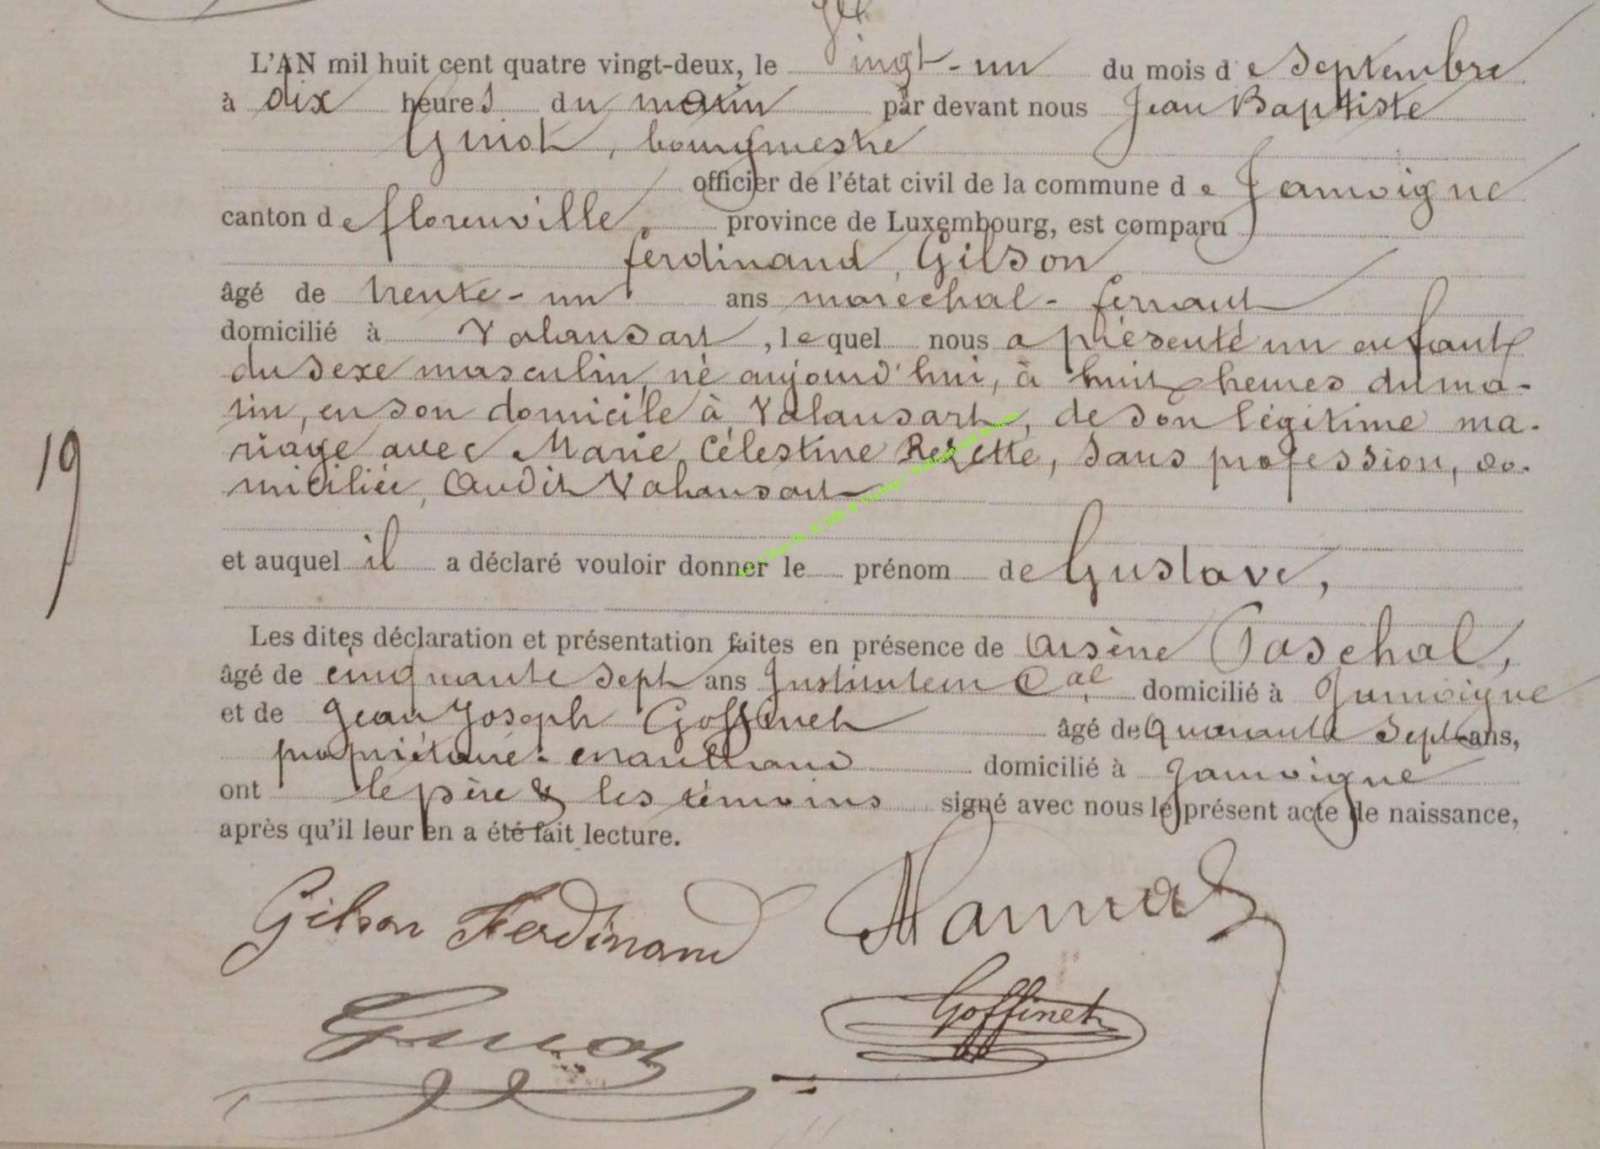 L'AN mil huit cent quatre vingt-deux, le vingt-un du mois de Septembre
à dix heures du matin par devant nous Jean Baptiste
Guiot, bourgmestre
officier de l'état civil de la commune de Jamoigne
canton de florenville, province de Luxembourg, est comparu
ferdinand Gilson
âgé de trente-un ans maréchal-ferrant
domicilié à Valansart, lequel nous a présenté un enfant
du sexe masculin, né aujourd'hui, à huit heures du ma-
tin, en son domicile à Valansart, de son légitime ma-
riage avec Marie Célestine Rezette, sans profession, do-
miciliée audit Valansart
19
et auquel il a déclaré vouloir donner le prénom de Gustave,
Les dites déclaration et présentation faites en présence de Arsène Paschal,
âgé de cinquante sept ans Instituteur Cal domicilié à Jamoigne
et de Jean Joseph Goffinet âgé de quarante sept ans,
propriétaire domicilié à Jamoigne
ont le père & les témoins signé avec nous le présent acte de naissance,
après qu'il leur en a été fait lecture.
Gilson Ferdinand
Guiot
Goffinet